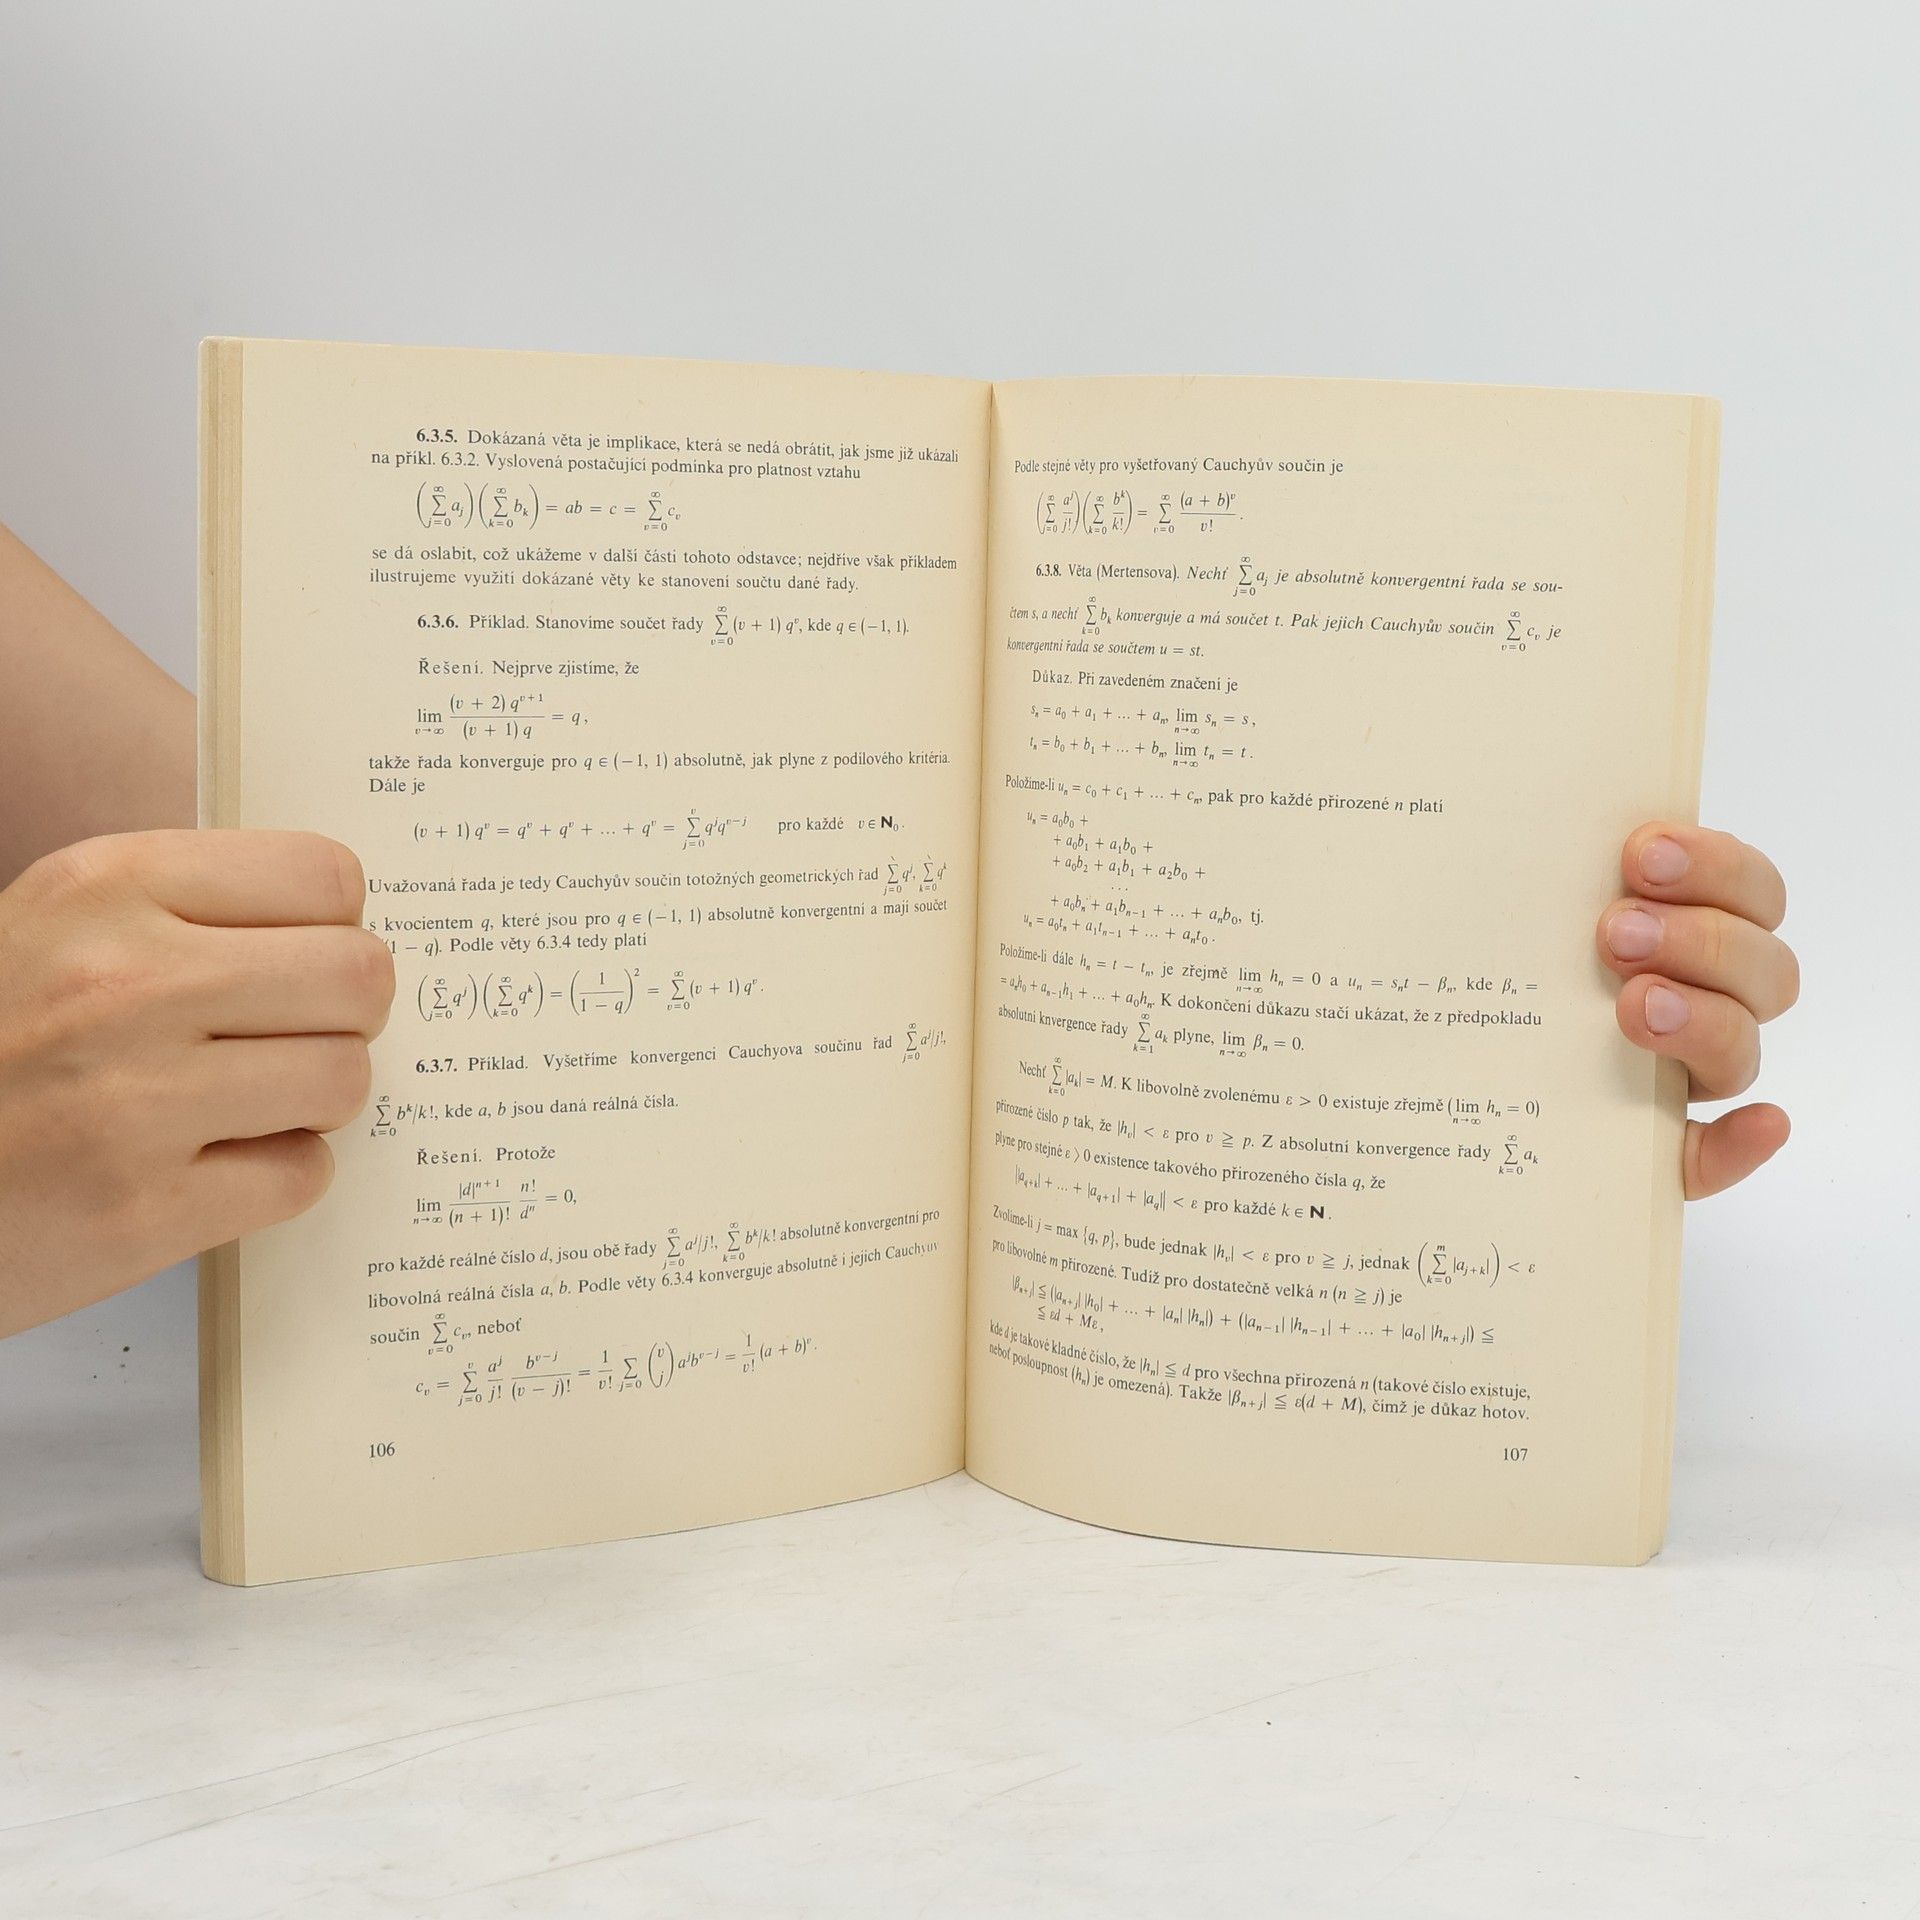 6.3.5. Dokázaná věta je implikace, která se nedá obrátit, jak jsme již ukázali
na příkl. 6.3.2. Vyslovená postačující podmínka pro platnost vztahu
(∑_{j=0}^{∞} a_j)(∑_{k=0}^{∞} b_k) = ab = c = ∑_{v=0}^{∞} c_v
se dá oslabit, což ukážeme v další části tohoto odstavce; nejdříve však příkladem
ilustrujeme využití dokázané věty ke stanovení součtu dané řady.
6.3.6. Příklad. Stanovíme součet řady ∑_{v=0}^{∞} (v + 1) q^v, kde q ∈ (−1, 1).
Řešení. Nejprve zjistíme, že
lim_{v→∞} (v + 2) q^{v+1} / (v + 1) q = q,
takže řada konverguje pro q ∈ (−1, 1) absolutně, jak plyne z podílového kritéria.
Dále je
(v + 1) q^v = q^v + q^v + ... + q^v = ∑_{j=0}^{v} q^j q^{v−j} pro každé v ∈ N_0.
Uvažovaná řada je tedy Cauchyův součin totožných geometrických řad ∑_{j=0} q^j, ∑_{k=0} q^k
s kvocientem q, které jsou pro q ∈ (−1, 1) absolutně konvergentní a mají součet
(1 − q). Podle věty 6.3.4 tedy platí
(∑_{j=0}^{∞} q^j)(∑_{k=0}^{∞} q^k) = (1/(1 − q))^2 = ∑_{v=0}^{∞} (v + 1) q^v.
6.3.7. Příklad. Vyšetříme konvergenci Cauchyova součinu řad ∑_{j=0}^{∞} a^j/j!,
∑_{k=0}^{∞} b^k/k!, kde a, b jsou daná reálná čísla.
Řešení. Protože
lim_{n→∞} |d|^{n+1}/(n + 1)! n!/d^n = 0,
pro každé reálné číslo d, jsou obě řady ∑_{j=0}^{∞} a^j/j!, ∑_{k=0}^{∞} b^k/k! absolutně konvergentní pro
libovolná reálná čísla a, b. Podle věty 6.3.4 konverguje absolutně i jejich Cauchyův
součin ∑_{v=0}^{∞} c_v, neboť
c_v = ∑_{j=0}^{v} a^j/j! b^{v−j}/(v − j)! = 1/v! ∑_{j=0}^{v} (v j) a^j b^{v−j} = 1/v! (a + b)^v.
106
Podle stejné věty pro vyšetřovaný Cauchyův součin je
(∑_{j=0}^{∞} a^j/j!)(∑_{k=0}^{∞} b^k/k!) = ∑_{v=0}^{∞} (a + b)^v/v!.
6.3.8. Věta (Mertensova). Nechť ∑_{j=0}^{∞} a_j je absolutně konvergentní řada se sou-
čtem s, a nechť ∑_{k=0}^{∞} b_k konverguje a má součet t. Pak jejich Cauchyův součin ∑_{v=0}^{∞} c_v je
konvergentní řada se součtem u = st.
Důkaz. Při zavedeném značení je
s_n = a_0 + a_1 + ... + a_n, lim_{n→∞} s_n = s,
t_n = b_0 + b_1 + ... + b_n, lim_{n→∞} t_n = t.
Položíme-li u_n = c_0 + c_1 + ... + c_n, pak pro každé přirozené n platí
u_n = a_0b_0 +
+ a_0b_1 + a_1b_0 +
+ a_0b_2 + a_1b_1 + a_2b_0 +
...
+ a_0b_n + a_1b_{n−1} + ... + a_nb_0, tj.
u_n = a_0t_n + a_1t_{n−1} + ... + a_nt_0.
Položíme-li dále h_n = t − t_n, je zřejmě lim_{n→∞} h_n = 0 a u_n = s_nt − β_n, kde β_n =
= a_nh_0 + a_{n−1}h_1 + ... + a_0h_n. K dokončení důkazu stačí ukázat, že z předpokladu
absolutní knvergence řady ∑_{k=1}^{∞} a_k plyne, lim_{n→∞} β_n = 0.
Nechť ∑_{k=0}^{∞} |a_k| = M. K libovolně zvolenému ε > 0 existuje zřejmě (lim_{n→∞} h_n = 0)
přirozené číslo p tak, že |h_v| < ε pro v ≧ p. Z absolutní konvergence řady ∑_{k=0}^{∞} a_k
plyne pro stejné ε > 0 existence takového přirozeného čísla q, že
||a_{q+k}| + ... + |a_{q+1}| + |a_q|| < ε pro každé k ∈ N.
Zvolíme-li j = max {q, p}, bude jednak |h_v| < ε pro v ≧ j, jednak (∑_{k=0}^{m} |a_{j+k}|) < ε
pro libovolné m přirozené. Tudíž pro dostatečně velká n (n ≧ j) je
|β_{n+j}| ≦ (|a_{n+j}| |h_0| + ... + |a_n| |h_n|) + (|a_{n−1}| |h_{n−1}| + ... + |a_0| |h_{n+j}|) ≦
≦ εd + Mε,
kde d je takové kladné číslo, že |h_n| ≦ d pro všechna přirozená n (takové číslo existuje,
neboť posloupnost (h_n) je omezená). Takže |β_{n+j}| ≦ ε(d + M), čímž je důkaz hotov.
107